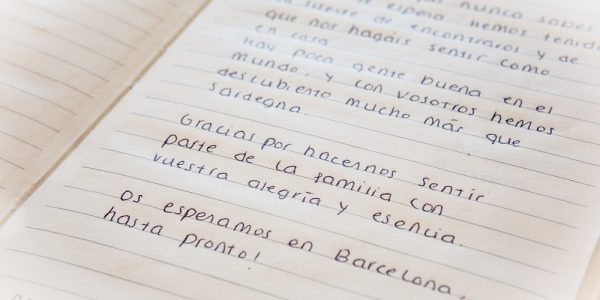 nunca sabes
espera hemos tenido
suerte de encontraros y de
que nos hagáis sentir como
en casa
Hay poca gente buena en el
mundo, y con vosotros hemos
descubierto mucho más que
Sardegna.
Gracias por hacernos sentir
parte de la familia con
vuestra alegría y esencia.
Os esperamos en Barcelona,
hasta pronto!